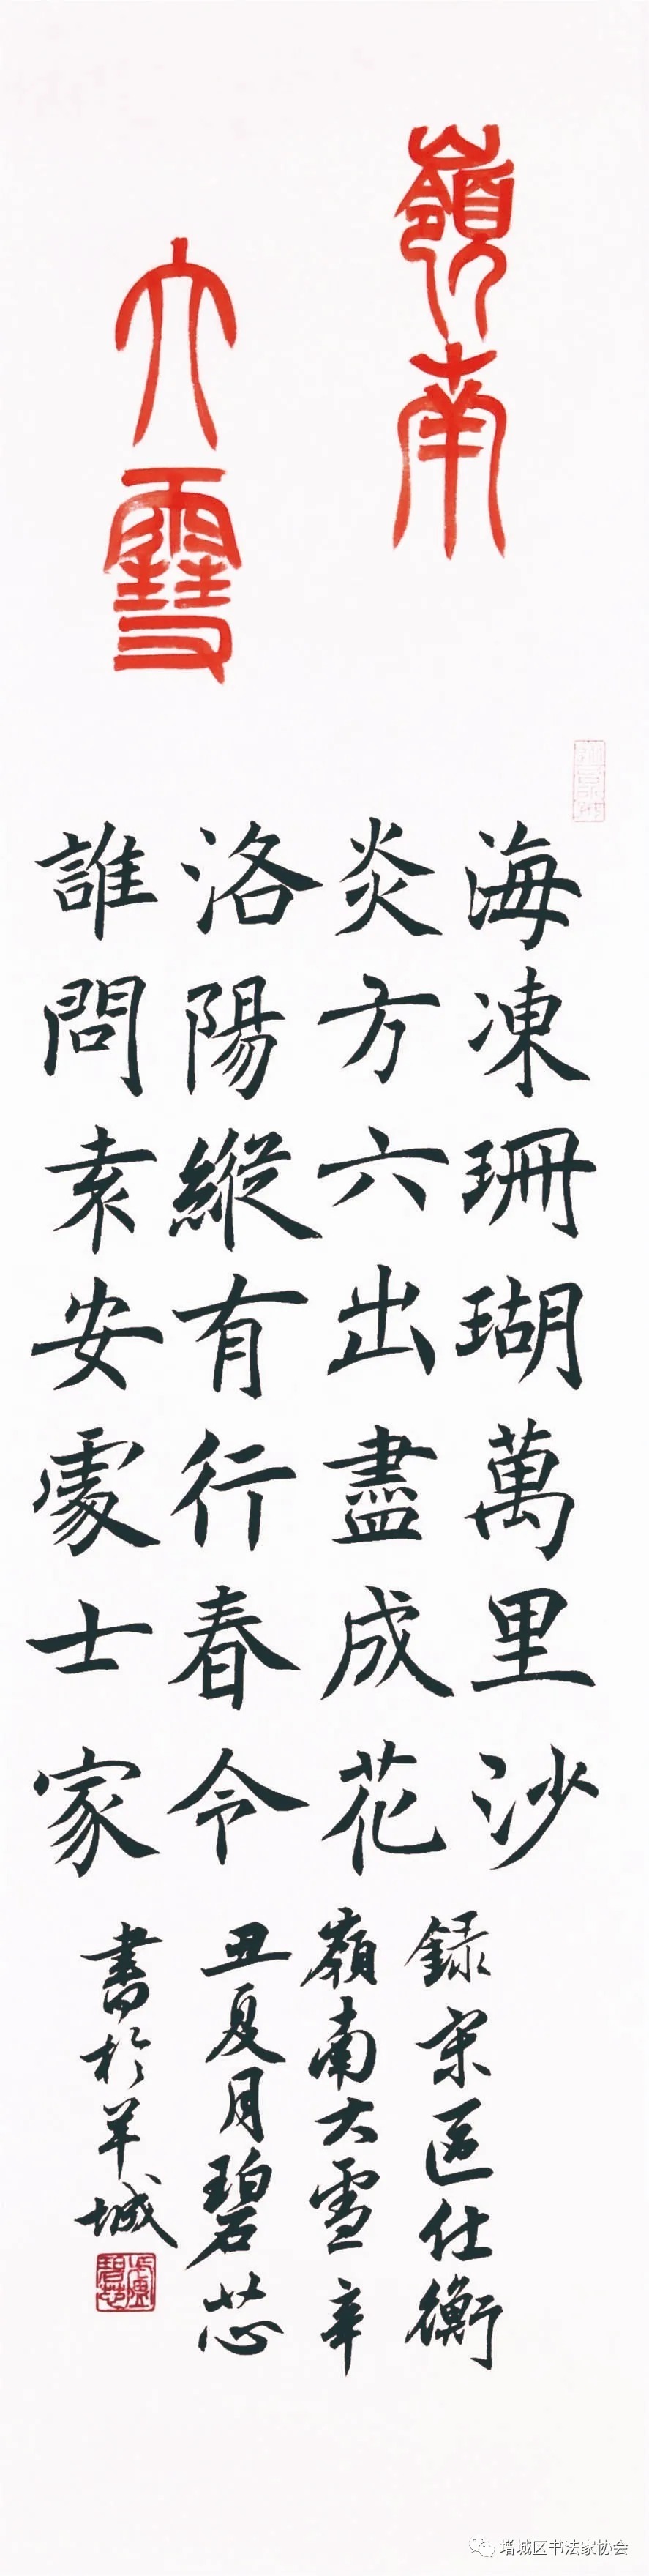 嶺南
大雪
海凍珊瑚萬里沙
炎方六出盡成花
洛陽縱有行春令
誰問袁安處士家
録宋區仕衡
嶺南大雪辛
丑夏月碧芯
書於羊城
增城区书法家协会